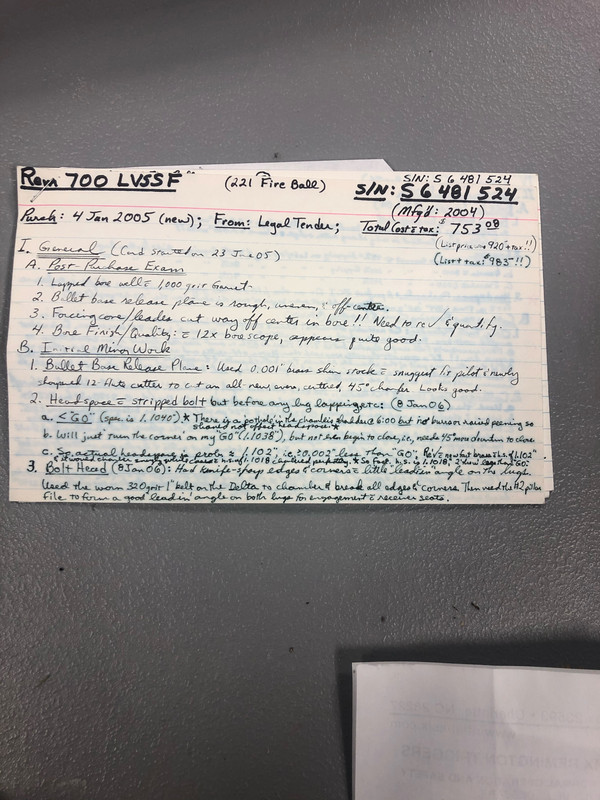 Rem 700 LVSSF
(221 Fire Ball)
S/N: S 6 481 524
S/N: S 6 481 524
(Mfg'd: 2004)
Purch: 4 Jan 2005 (new); From: Legal Tender; Total Cost + tax: $753.08
(List price = $920 + tax!!)
(List + tax: $985!!)
I. General (Card started on 23 Jan 05)
A. Post-Purchase Exam
1. Lapped bore well c 1,000 grit Garnet.
2. Bullet base release plane is rough, uneven, & off center.
3. Forcing cone/leades cut way off center in bore!! Need to re √ & quantify.
4. Bore Finish/Quality: c 12x borescope, appears quite good.
B. Initial Minor Work
1. Bullet Base Release Plane: Used 0.001" brass shim stock c snuggest fit pilot & newly
sharpened 12 flute cutter to cut an all-new, even, centered, 45° chamfer. Looks good.
2. Headspace c stripped bolt but before any lug lapping etc: (8 Jan 06)
a. < "GO" (spec is 1.1040") * There is a pothole in the chamber shoulder @ 6:00 but no burrs or raised peening so
should not affect headspacing.
b. Will just turn the corner on my GO (1.1038"), but not even begin to close, i.e., needs 45° more downturn to close.
c. So actual headspace is probly = 1.102", i.e., 0.002" less than "GO".
3. Bolt Head (8 Jan 06): Had knife-sharp edges & corners c little leadin' angle on the lugs.
Used the worn 320 grit 1" belt on the Delta to chamber & break all edges & corners. Then used the #2 pillar
file to form a good leadin' angle on both lugs for engagement c receiver seats.